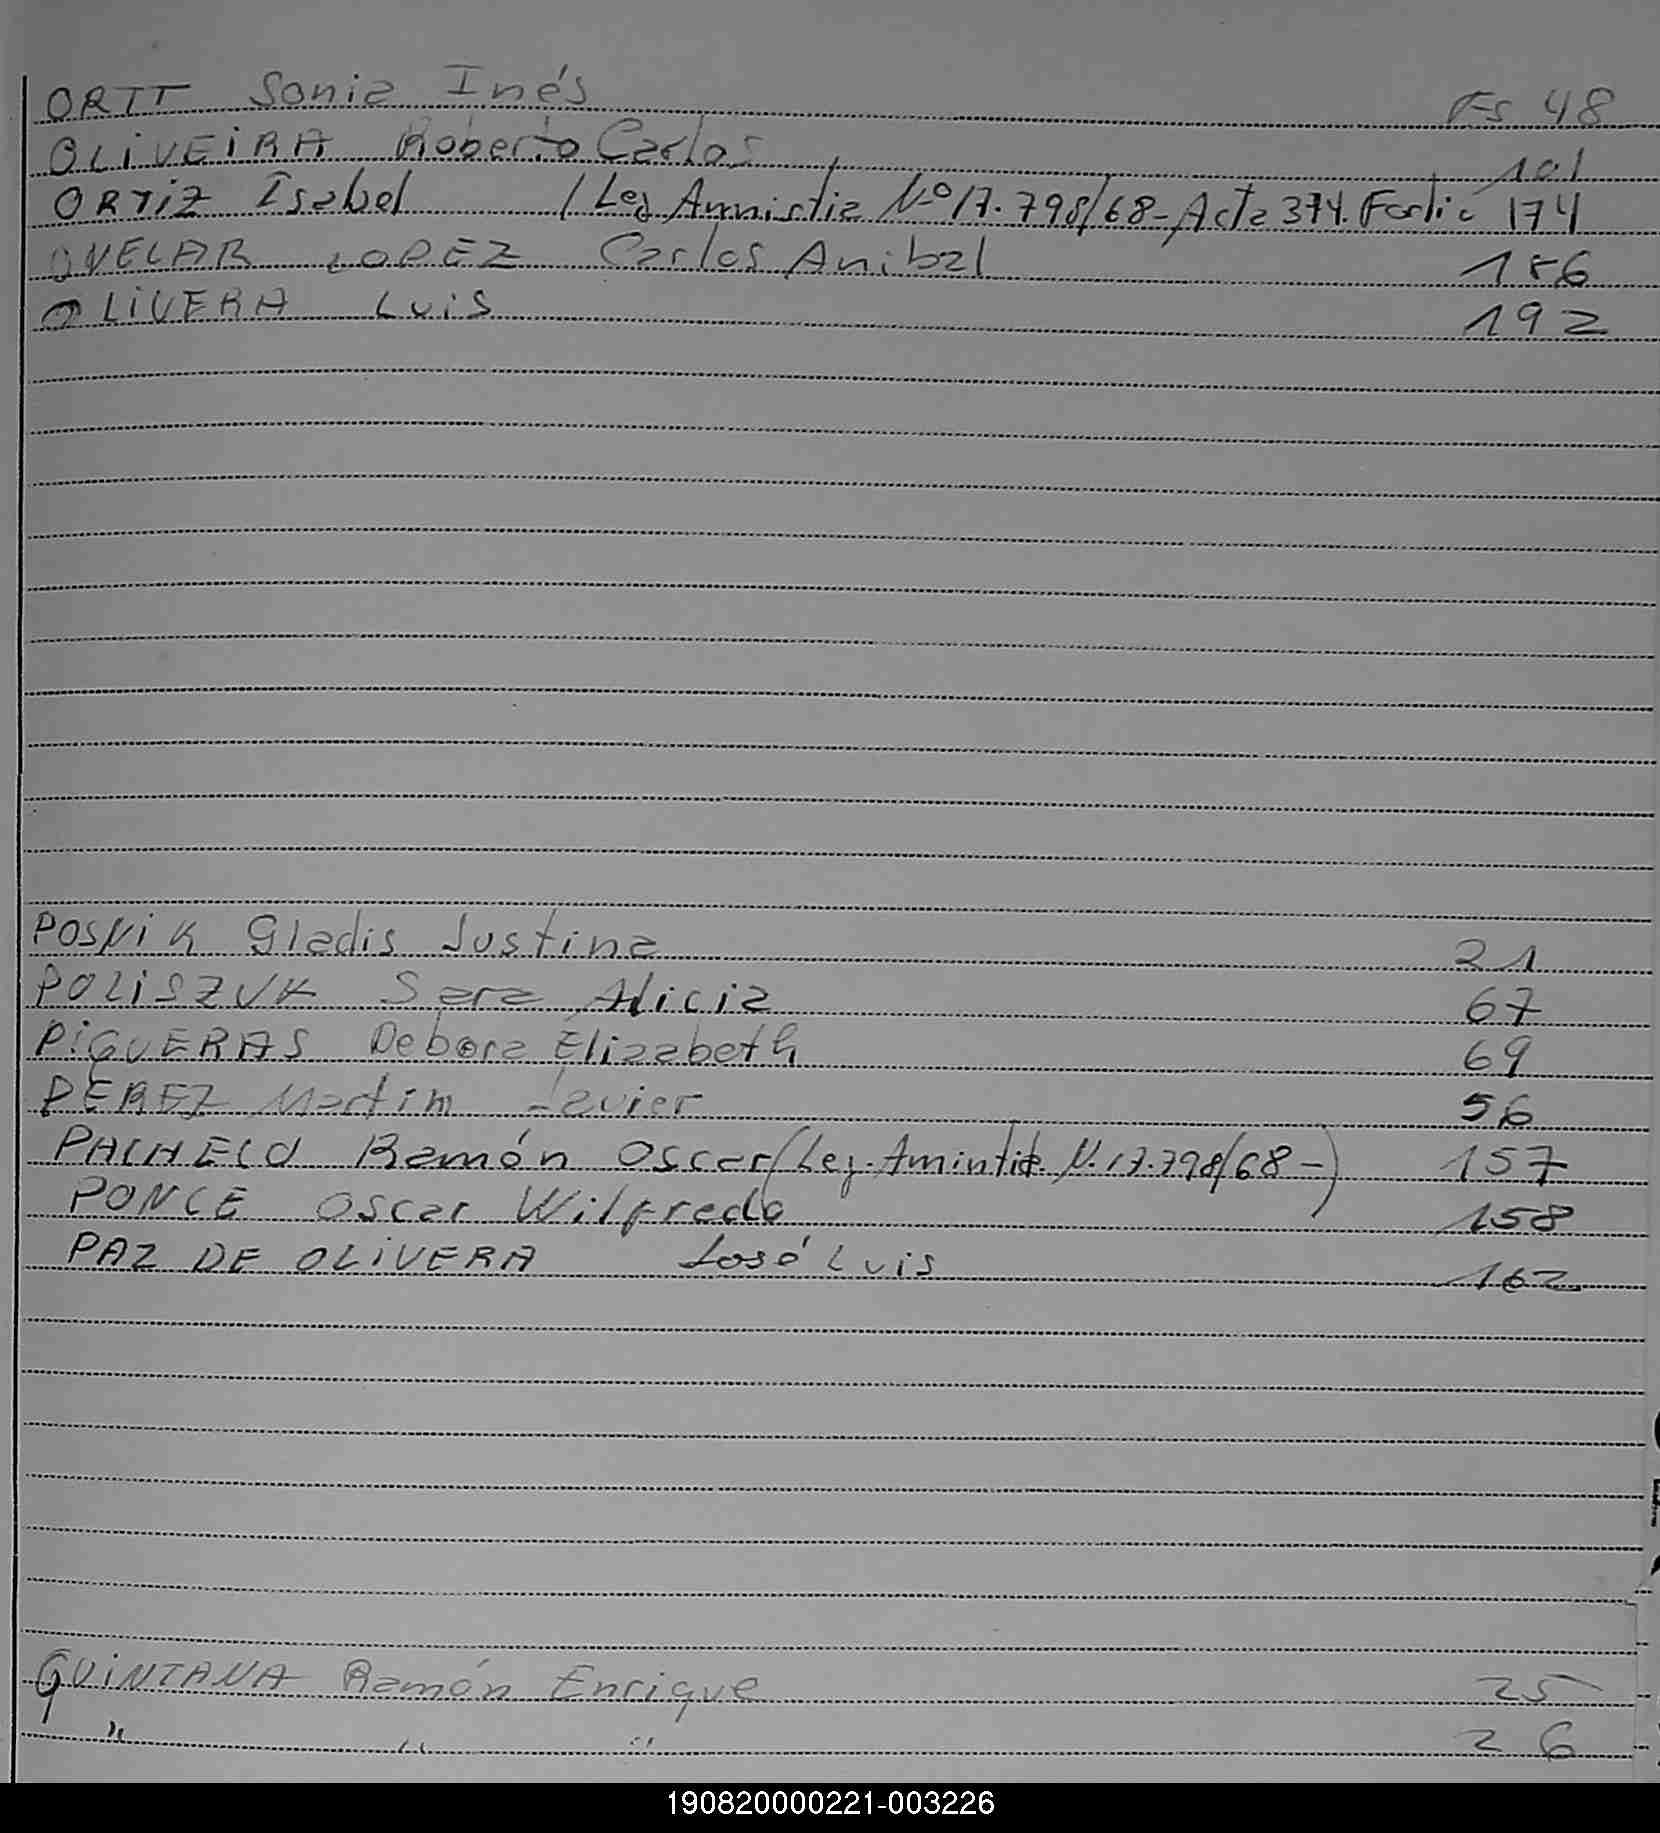 ORTT Sonia Inés Fs 48
OLIVEIRA Roberto Carlos 101
ORTIZ Isabel (Ley Amnistia Nº 17.798/68 - Acta 374. Fortic 174
OVELAR LOPEZ Carlos Anibal 186
OLIVERA Luis 192
POSNIK Gladis Justina 21
POLISZUK Sara Alicia 67
PIGUERAS Debora Elizabeth 69
PÉREZ Martim Javier 56
PACHECO Ramón Oscar (Ley. Amintia N. 17.798/68 -) 157
PONCE Oscar Wilfredo 158
PAZ DE OLIVERA José Luis 162
QUINTANA Ramón Enrique 25
" " " 26
190820000221-003226